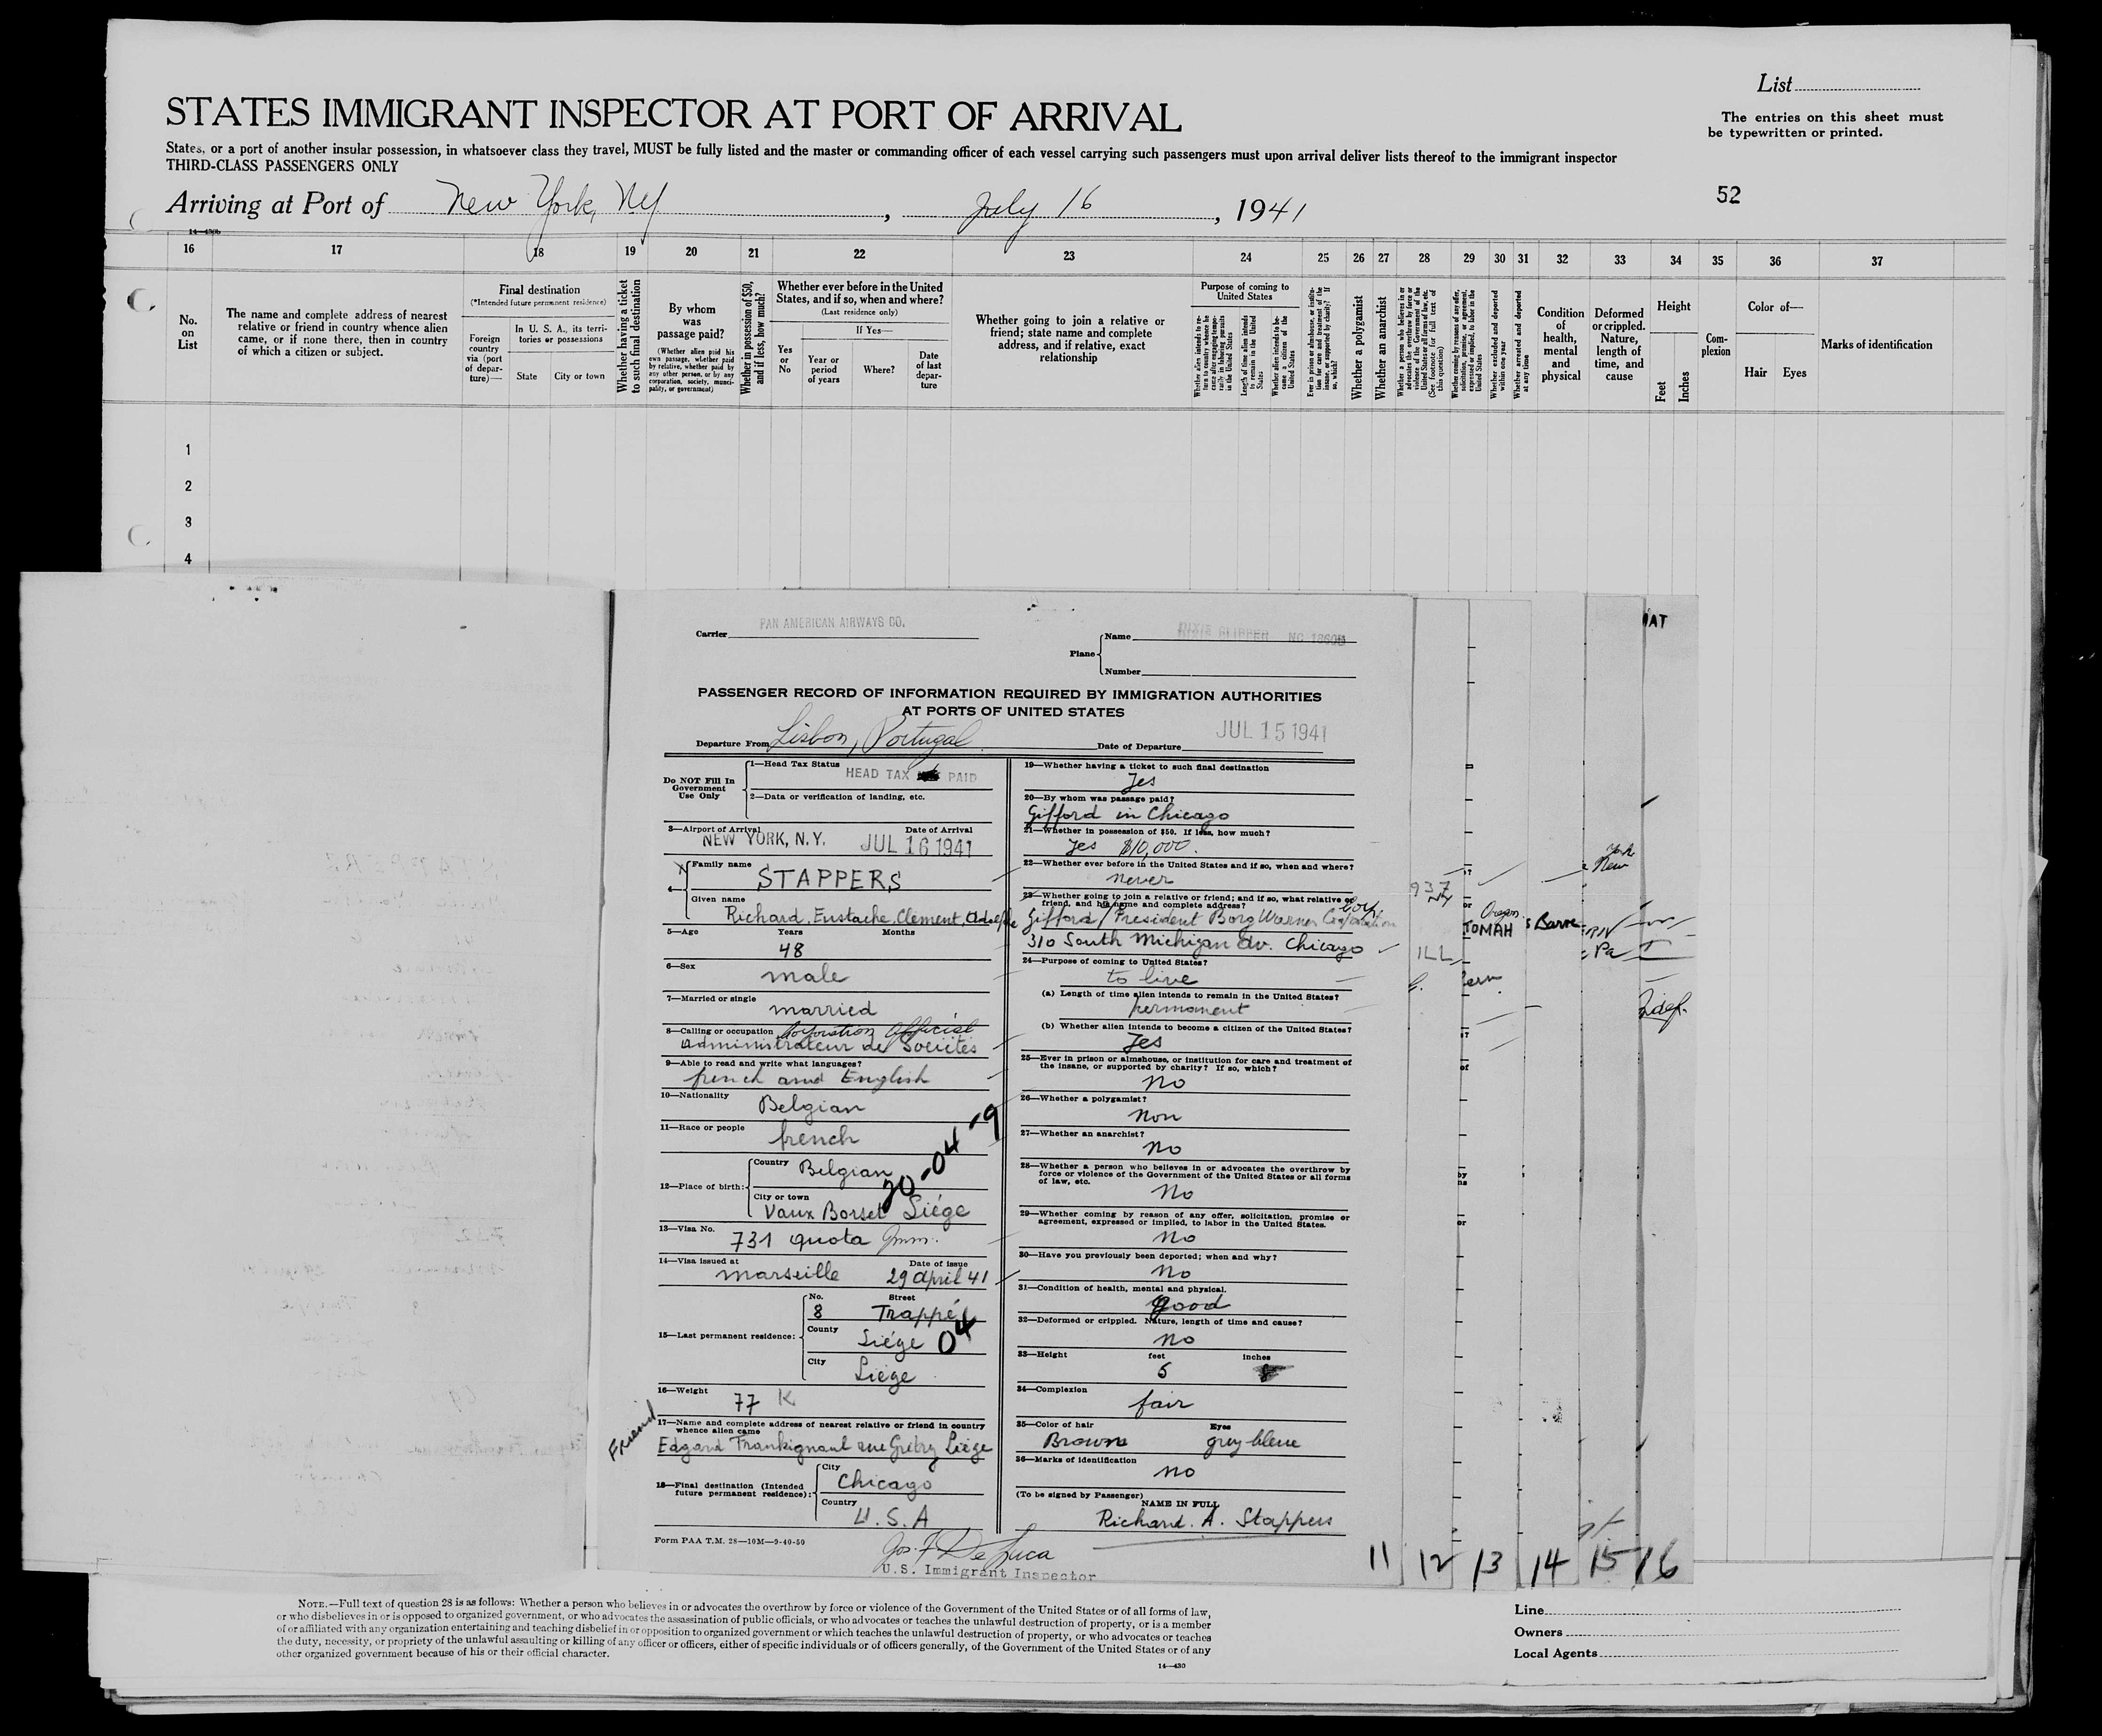 List
STATES IMMIGRANT INSPECTOR AT PORT OF ARRIVAL
The entries on this sheet must
be typewritten or printed.
States, or a port of another insular possession, in whatsoever class they travel, MUST be fully listed and the master or commanding officer of each vessel carrying such passengers must upon arrival deliver lists thereof to the immigrant inspector
THIRD-CLASS PASSENGERS ONLY
52
Arriving at Port of New York, NY, July 16, 1941
16 17 18 19 20 21 22 23 24 25 26 27 28 29 30 31 32 33 34 35 36 37
No.
on
List
The name and complete address of nearest
relative or friend in country whence alien
came, or if none there, then in country
of which a citizen or subject.
Final destination
(*Intended future permanent residence)
Foreign
country
via (port
of depar-
ture)—
In U. S. A., its terri-
tories or possessions
State
City or town
Whether having a ticket
to such final destination
By whom
was
passage paid?
(Whether alien paid his
own passage, whether paid
by relative, whether paid by
any other person, or by any
corporation, society, munici-
pality, or government)
Whether in possession of $50,
and if less, how much?
Whether ever before in the United
States, and if so, when and where?
(Last residence only)
If Yes—
Yes
or
No
Year or
period
of years
Where?
Date
of last
depar-
ture
Whether going to join a relative or
friend; state name and complete
address, and if relative, exact
relationship
Purpose of coming to
United States
Length of time alien intends
to remain in the United
States
Whether alien intends to be-
come a citizen of the
United States
Whether a polygamist
Whether an anarchist
Whether excluded and deported
within one year
Whether arrested and deported
at any time
Condition
of
health,
mental
and
physical
Deformed
or crippled.
Nature,
length of
time, and
cause
Height
Feet
Inches
Com-
plexion
Color of—
Hair
Eyes
Marks of identification
1
2
3
4
Carrier PAN AMERICAN AIRWAYS CO.
Plane
Name DIXIE CLIPPER NC 18605
Number
PASSENGER RECORD OF INFORMATION REQUIRED BY IMMIGRATION AUTHORITIES
AT PORTS OF UNITED STATES
Departure From Lisbon, Portugal Date of Departure JUL 15 1941
Do NOT Fill In
Government
Use Only
1—Head Tax Status HEAD TAX PAID
2—Data or verification of landing, etc.
3—Airport of Arrival Date of Arrival
NEW YORK, N.Y. JUL 16 1941
4—
Family name
STAPPERS
Given name
Richard, Eustache, Clement, Adolphe
5—Age Years Months
48
6—Sex
male
7—Married or single
married
8—Calling or occupation Corporation Official
administrateur de Sociétés
9—Able to read and write what languages?
french and English
10—Nationality
Belgian
11—Race or people
french
12—Place of birth:
Country Belgian
City or town
Vaux Borset Liége
20-04-9
13—Visa No.
731 quota Imm.
14—Visa issued at Date of issue
Marseille 29 April 41
15—Last permanent residence:
No. Street
8 Trappé
County
Liége 04
City
Liége
16—Weight
77 K
17—Name and complete address of nearest relative or friend in country
whence alien came
Friend
Edgard Frankignoul rue Grétry Liége
18—Final destination (Intended
future permanent residence):
City
Chicago
Country
U.S.A
Form PAA T.M. 28—10M—9-40-50
Jos. F. De Luca
U.S. Immigrant Inspector
19—Whether having a ticket to such final destination
Yes
20—By whom was passage paid?
Gifford in Chicago
21—Whether in possession of $50. If less, how much?
Yes $10,000.
22—Whether ever before in the United States and if so, when and where?
never
23—Whether going to join a relative or friend; and if so, what relative or
friend, and his name and complete address?
Gifford / President Borg Warner Corporation
310 South Michigan Av. Chicago
24—Purpose of coming to United States?
to live
(a) Length of time alien intends to remain in the United States?
permanent
(b) Whether alien intends to become a citizen of the United States?
Yes
25—Ever in prison or almshouse, or institution for care and treatment of
the insane, or supported by charity? If so, which?
No
26—Whether a polygamist?
Non
27—Whether an anarchist?
No
28—Whether a person who believes in or advocates the overthrow by
force or violence of the Government of the United States or all forms
of law, etc.
No
29—Whether coming by reason of any offer, solicitation, promise or
agreement, expressed or implied, to labor in the United States.
No
30—Have you previously been deported; when and why?
No
31—Condition of health, mental and physical.
good
32—Deformed or crippled. Nature, length of time and cause?
No
33—Height feet inches
5
34—Complexion
fair
35—Color of hair Eyes
Brown grey bleue
36—Marks of identification
No
(To be signed by Passenger)
NAME IN FULL
Richard. A. Stappers
937
NY
ILL
Oregon
TOMAH
Barre
York
New
Pa
Indef.
11 12 13 14 15 16
NOTE.—Full text of question 28 is as follows: Whether a person who believes in or advocates the overthrow by force or violence of the Government of the United States or of all forms of law,
or who disbelieves in or is opposed to organized government, or who advocates the assassination of public officials, or who advocates or teaches the unlawful destruction of property, or is a member
of or affiliated with any organization entertaining and teaching disbelief in or opposition to organized government or which teaches the unlawful destruction of property, or who advocates or teaches
the duty, necessity, or propriety of the unlawful assaulting or killing of any officer or officers, either of specific individuals or of officers generally, of the Government of the United States or of any
other organized government because of his or their official character.
14—430
Line
Owners
Local Agents